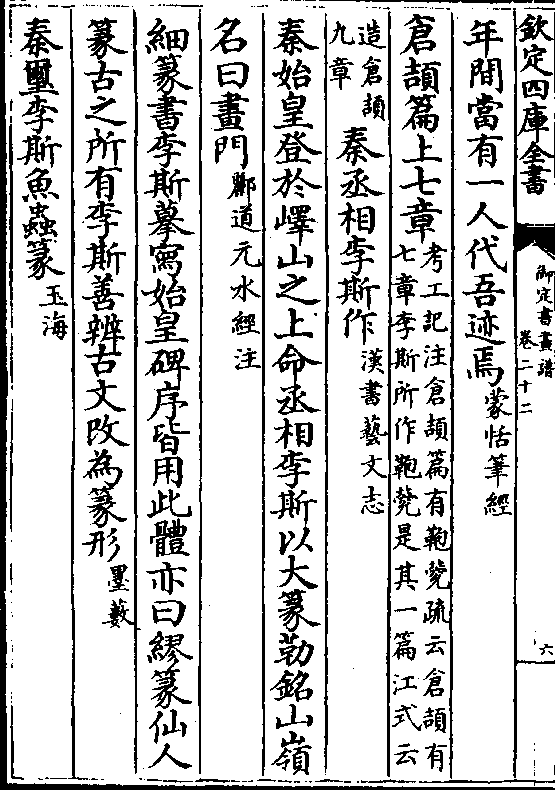 欽定四庫全書
御定書畫譜
卷二十二
六
年間當有一人代吾迹焉蒙恬筆經
倉頡篇上七章考工記注倉頡篇有鞄㲋疏云倉頡有
七章李斯所作鞄㲋是其一篇江式云
造倉頡
九章
秦丞相李斯作漢書藝文志
秦始皇登於嶧山之上命丞相李斯以大篆勒銘山嶺
名曰畫門酈道元水經注
細篆書李斯摹寫始皇碑序皆用此體亦曰繆篆仙人
篆古之所有李斯善辨古文改為篆形墨藪
秦璽李斯魚蟲篆玉海